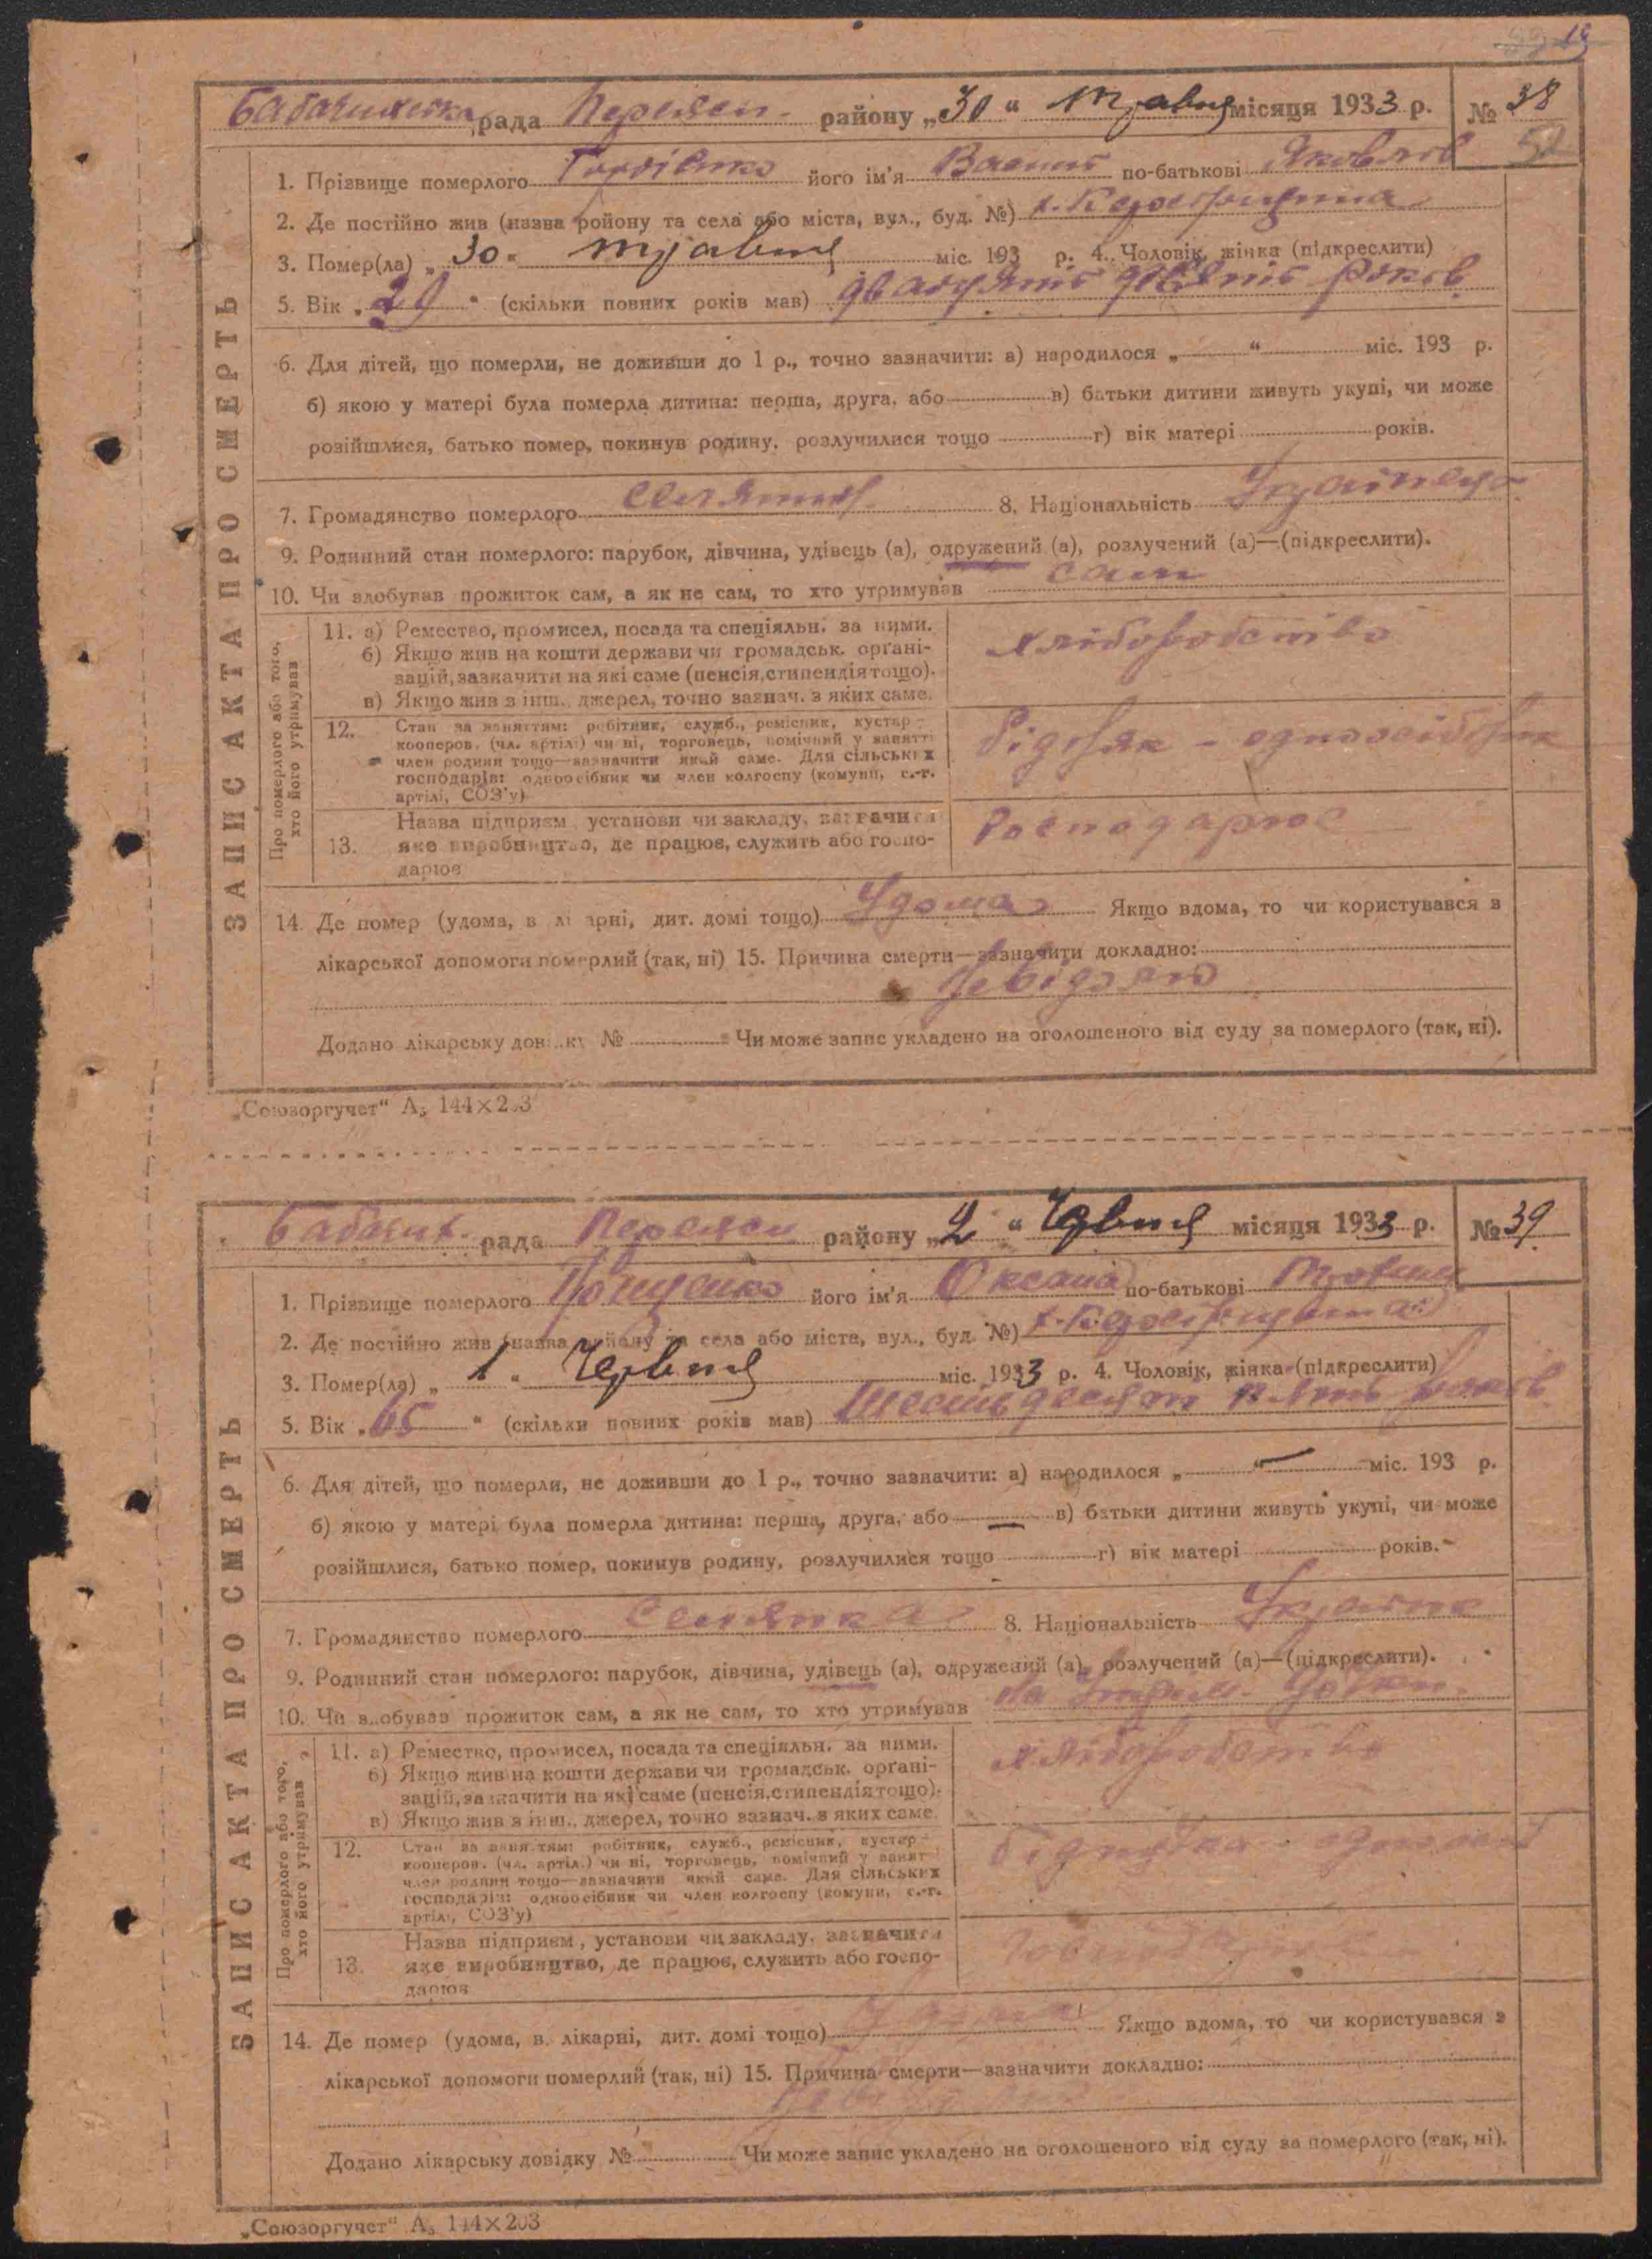 19
рада Переяс. району „30“ травня місяця 1933 р. № 38
52
1. Прізвище померлого Гордієнко його ім'я Василь по-батькові Яковлев
2. Де постійно жив (назва ройону та села або міста, вул., буд. №)
3. Помер(ла) „30“ травня міс. 193 р. 4. Чоловік, жінка (підкреслити)
5. Вік „29“ (скільки повних років мав) двадцять девять років
6. Для дітей, що померли, не доживши до 1 р., точно зазначити: а) народилося „ “ міс. 193 р.
б) якою у матері була померла дитина: перша, друга, або в) батьки дитини живуть укупі, чи може
розійшлися, батько помер, покинув родину, розлучилися тощо г) вік матері років.
7. Громадянство померлого селянин 8. Національність Українець
9. Родинний стан померлого: парубок, дівчина, удівець (а), одружений (а), розлучений (а)—(підкреслити).
10. Чи здобував прожиток сам, а як не сам, то хто утримував сам
ЗАПИС АКТА ПРО СМЕРТЬ
Про померлого або того, хто його утримував
11. а) Ремество, промисел, посада та спеціяльн. за ними.
б) Якщо жив на кошти держави чи громадськ. орґані-
зацій, зазначити на які саме (пенсія, стипендія тощо).
в) Якщо жив з інш. джерел, точно зазнач. з яких саме.
хліборобство
12. Стан за заняттям: робітник, служб., ремісник, кустар -
кооперов. (чл. артілі) чи ні, торговець, помічний у занятті
член родини тощо—зазначити який саме. Для сільських
господарів: одноосібник чи член колгоспу (комуни, с.-г.
артілі, СОЗ'у)
бідняк - одноосібник
13. Назва підприєм, установи чи закладу, зазначити
яке виробництво, де працює, служить або госпо-
дарює
господарює
14. Де помер (удома, в лікарні, дит. домі тощо) Удома Якщо вдома, то чи користувався з
лікарської допомоги померлий (так, ні) 15. Причина смерти—зазначити докладно:
Невідомо
Додано лікарську довідку № Чи може запис укладено на оголошеного від суду за померлого (так, ні).
„Союзоргучет“ А₅ 144×203
рада Переяс району „2“ Червня місяця 1933 р. № 39
1. Прізвище померлого його ім'я Оксана по-батькові
2. Де постійно жив (назва району та села або міста, вул., буд. №)
3. Помер(ла) „1“ Червня міс. 1933 р. 4. Чоловік, жінка (підкреслити)
5. Вік „65“ (скільки повних років мав) Шестьдесят пять років
6. Для дітей, що померли, не доживши до 1 р., точно зазначити: а) народилося „ “ міс. 193 р.
б) якою у матері була померла дитина: перша, друга, або — в) батьки дитини живуть укупі, чи може
розійшлися, батько помер, покинув родину, розлучилися тощо г) вік матері років.
7. Громадянство померлого Селянка 8. Національність Українк
9. Родинний стан померлого: парубок, дівчина, удівець (а), одружений (а), розлучений (а)—(підкреслити).
10. Чи здобував прожиток сам, а як не сам, то хто утримував на утрим. дочки
ЗАПИС АКТА ПРО СМЕРТЬ
Про померлого або того, хто його утримував
11. а) Ремество, промисел, посада та спеціяльн. за ними.
б) Якщо жив на кошти держави чи громадськ. орґані-
зацій, зазначити на які саме (пенсія, стипендія тощо).
в) Якщо жив з інш. джерел, точно зазнач. з яких саме.
хліборобство
12. Стан за заняттям: робітник, служб., ремісник, кустар -
кооперов. (чл. артілі) чи ні, торговець, помічний у занятті
член родини тощо—зазначити який саме. Для сільських
господарів: одноосібник чи член колгоспу (комуни, с.-г.
артілі, СОЗ'у)
13. Назва підприєм, установи чи закладу, зазначити
яке виробництво, де працює, служить або госпо-
дарює
14. Де помер (удома, в лікарні, дит. домі тощо) Удома Якщо вдома, то чи користувався з
лікарської допомоги померлий (так, ні) 15. Причина смерти—зазначити докладно:
Невідомо
Додано лікарську довідку № Чи може запис укладено на оголошеного від суду за померлого (так, ні).
„Союзоргучет“ А₅ 144×203